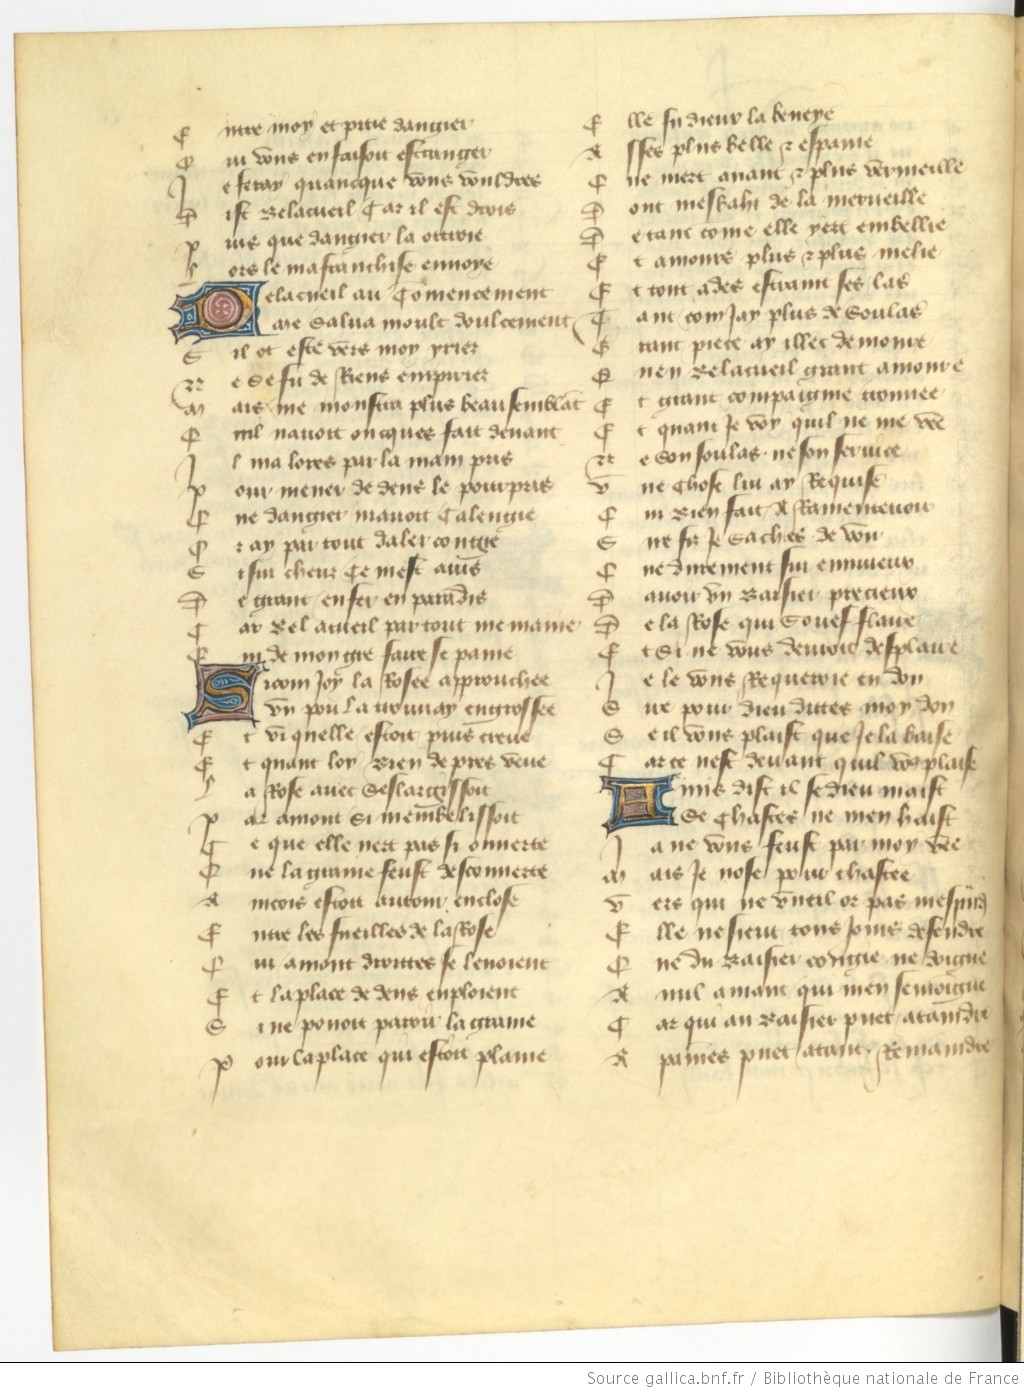 Entre moy et pitie dangier
Qui vous en faisoit estranger
Je feray quancque vous vouldres
Dist Belacueil Car il est drois
Puis que dangier la ottroie
Lors le ma franchise envoye
Belacueil au Comencement
Me Salua moult doulcement
Sil ot este vers moy yrier
Ne Se fu de Riens empirier
Mais me monstra plus beau semblāt
Quil navoit oncques fait devant
Il ma lores par la main pris
Pour mener de dens le pourpris
Que dangier mavoit Calengie
Or ay par tout daler congie
S i sui cheuz Ce mest avis
De grant enfer en paradis
Car Bel acueil par tout me maine
Qui de mon gre faire se paine
Si com Joy la Rosee approuchee
Un pou la trouvay engrossee
Et vi quelle estoit puis creue
Et quant loy Bien de pres veue
La Rose auec Seslargissoit
Par amont Si membelissoit
Ce que elle nert pas si ouverte
Que la graine feust descouverte
Aincois estoit autour enclose
Entre les fueilles de la Rose
Qui amont droittes se levoient
Et la place de dens emploient
Si ne pouoit paroir la graine
Pour la place qui estoit plaine
Elle fu dieux la beneye
Asses plus belle et espanie
Que niert avant et plus vermeille
Dont mesbahi de la merveille
De tant come elle yert embellie
Et amours plus et plus me lie
Et tout ades estraint ses las
Tant com Jay plus de Soulas
Grant piece ay illec demoure
Quen Belacueil grant amour e
Et grant compaignie trouvee
Et quant Je voy quil ne me vee
Ne Son soulas ne son service
Une Chose lui ay Requise
Qui Bien fait A Ramentevoir
Sire fis Je Saches de voir
Que durement sui envieux
Davoir un Baisier precieux
De la Rose qui Souef flaire
Et Si ne vous devoit desplaire
Je le vous Requeroie en don
Sire pour dieu dittes moy don
Se il vous plaist que Je la baise
Car ce nest devant quil voꝰ plaise
Amis dist il se dieu maist
Se Chastes ne men haist
Ja ne vous feust par moy vee
Mais Je nose pour chastee
Vers qui ne vueil or pas
Elle me sieut tous Jours defendre
Que du Baisier congie ne doigne
A nul amant qui men semoigne
Car qui au Baisier puet ataindre
A paines puet atant Remaindre
Source gallica.bnf.fr / Bibliothèque nationale de France